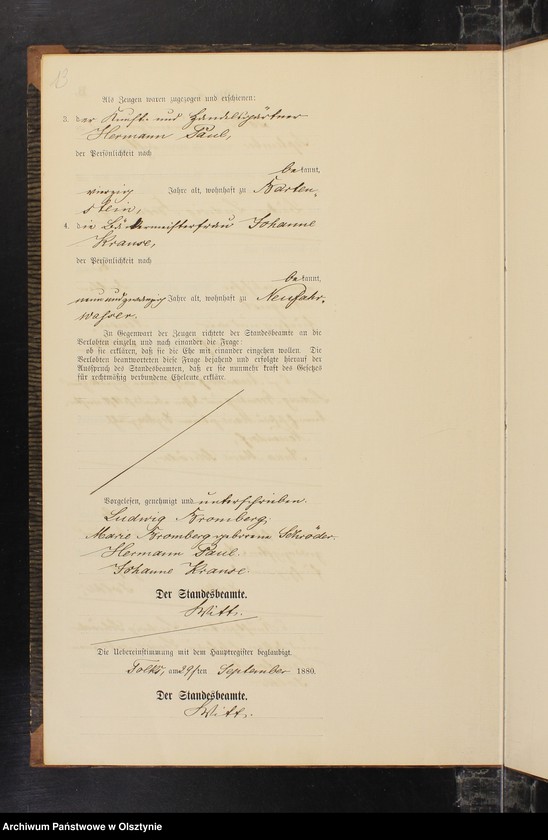 13
Als Zeugen waren zugezogen und erschienen:
3. der Kunst- und Handelsgärtner
Hermann Paul,
der Persönlichkeit nach
bekannt,
vierzig Jahre alt, wohnhaft zu Barten-
stein,
4. die Bäckermeisterfrau Johanne
Krause,
der Persönlichkeit nach
bekannt,
neunundzwanzig Jahre alt, wohnhaft zu Neufahr-
wasser.
In Gegenwart der Zeugen richtete der Standesbeamte an die
Verlobten einzeln und nach einander die Frage:
ob sie erklären, daß sie die Ehe mit einander eingehen wollen. Die
Verlobten beantworteten diese Frage bejahend und erfolgte hierauf der
Ausspruch des Standesbeamten, daß er sie nunmehr kraft des Gesetzes
für rechtmäßig verbundene Eheleute erkläre.
Vorgelesen, genehmigt und unterschrieben.
Ludwig Bromberg,
Marie Bromberg geborene Schröder.
Hermann Paul.
Johanne Krause.
Der Standesbeamte.
Witt.
Die Uebereinstimmung mit dem Hauptregister beglaubigt.
Tolks, am 29ten September 1880.
Der Standesbeamte.
Witt.
Archiwum Państwowe w Olsztynie